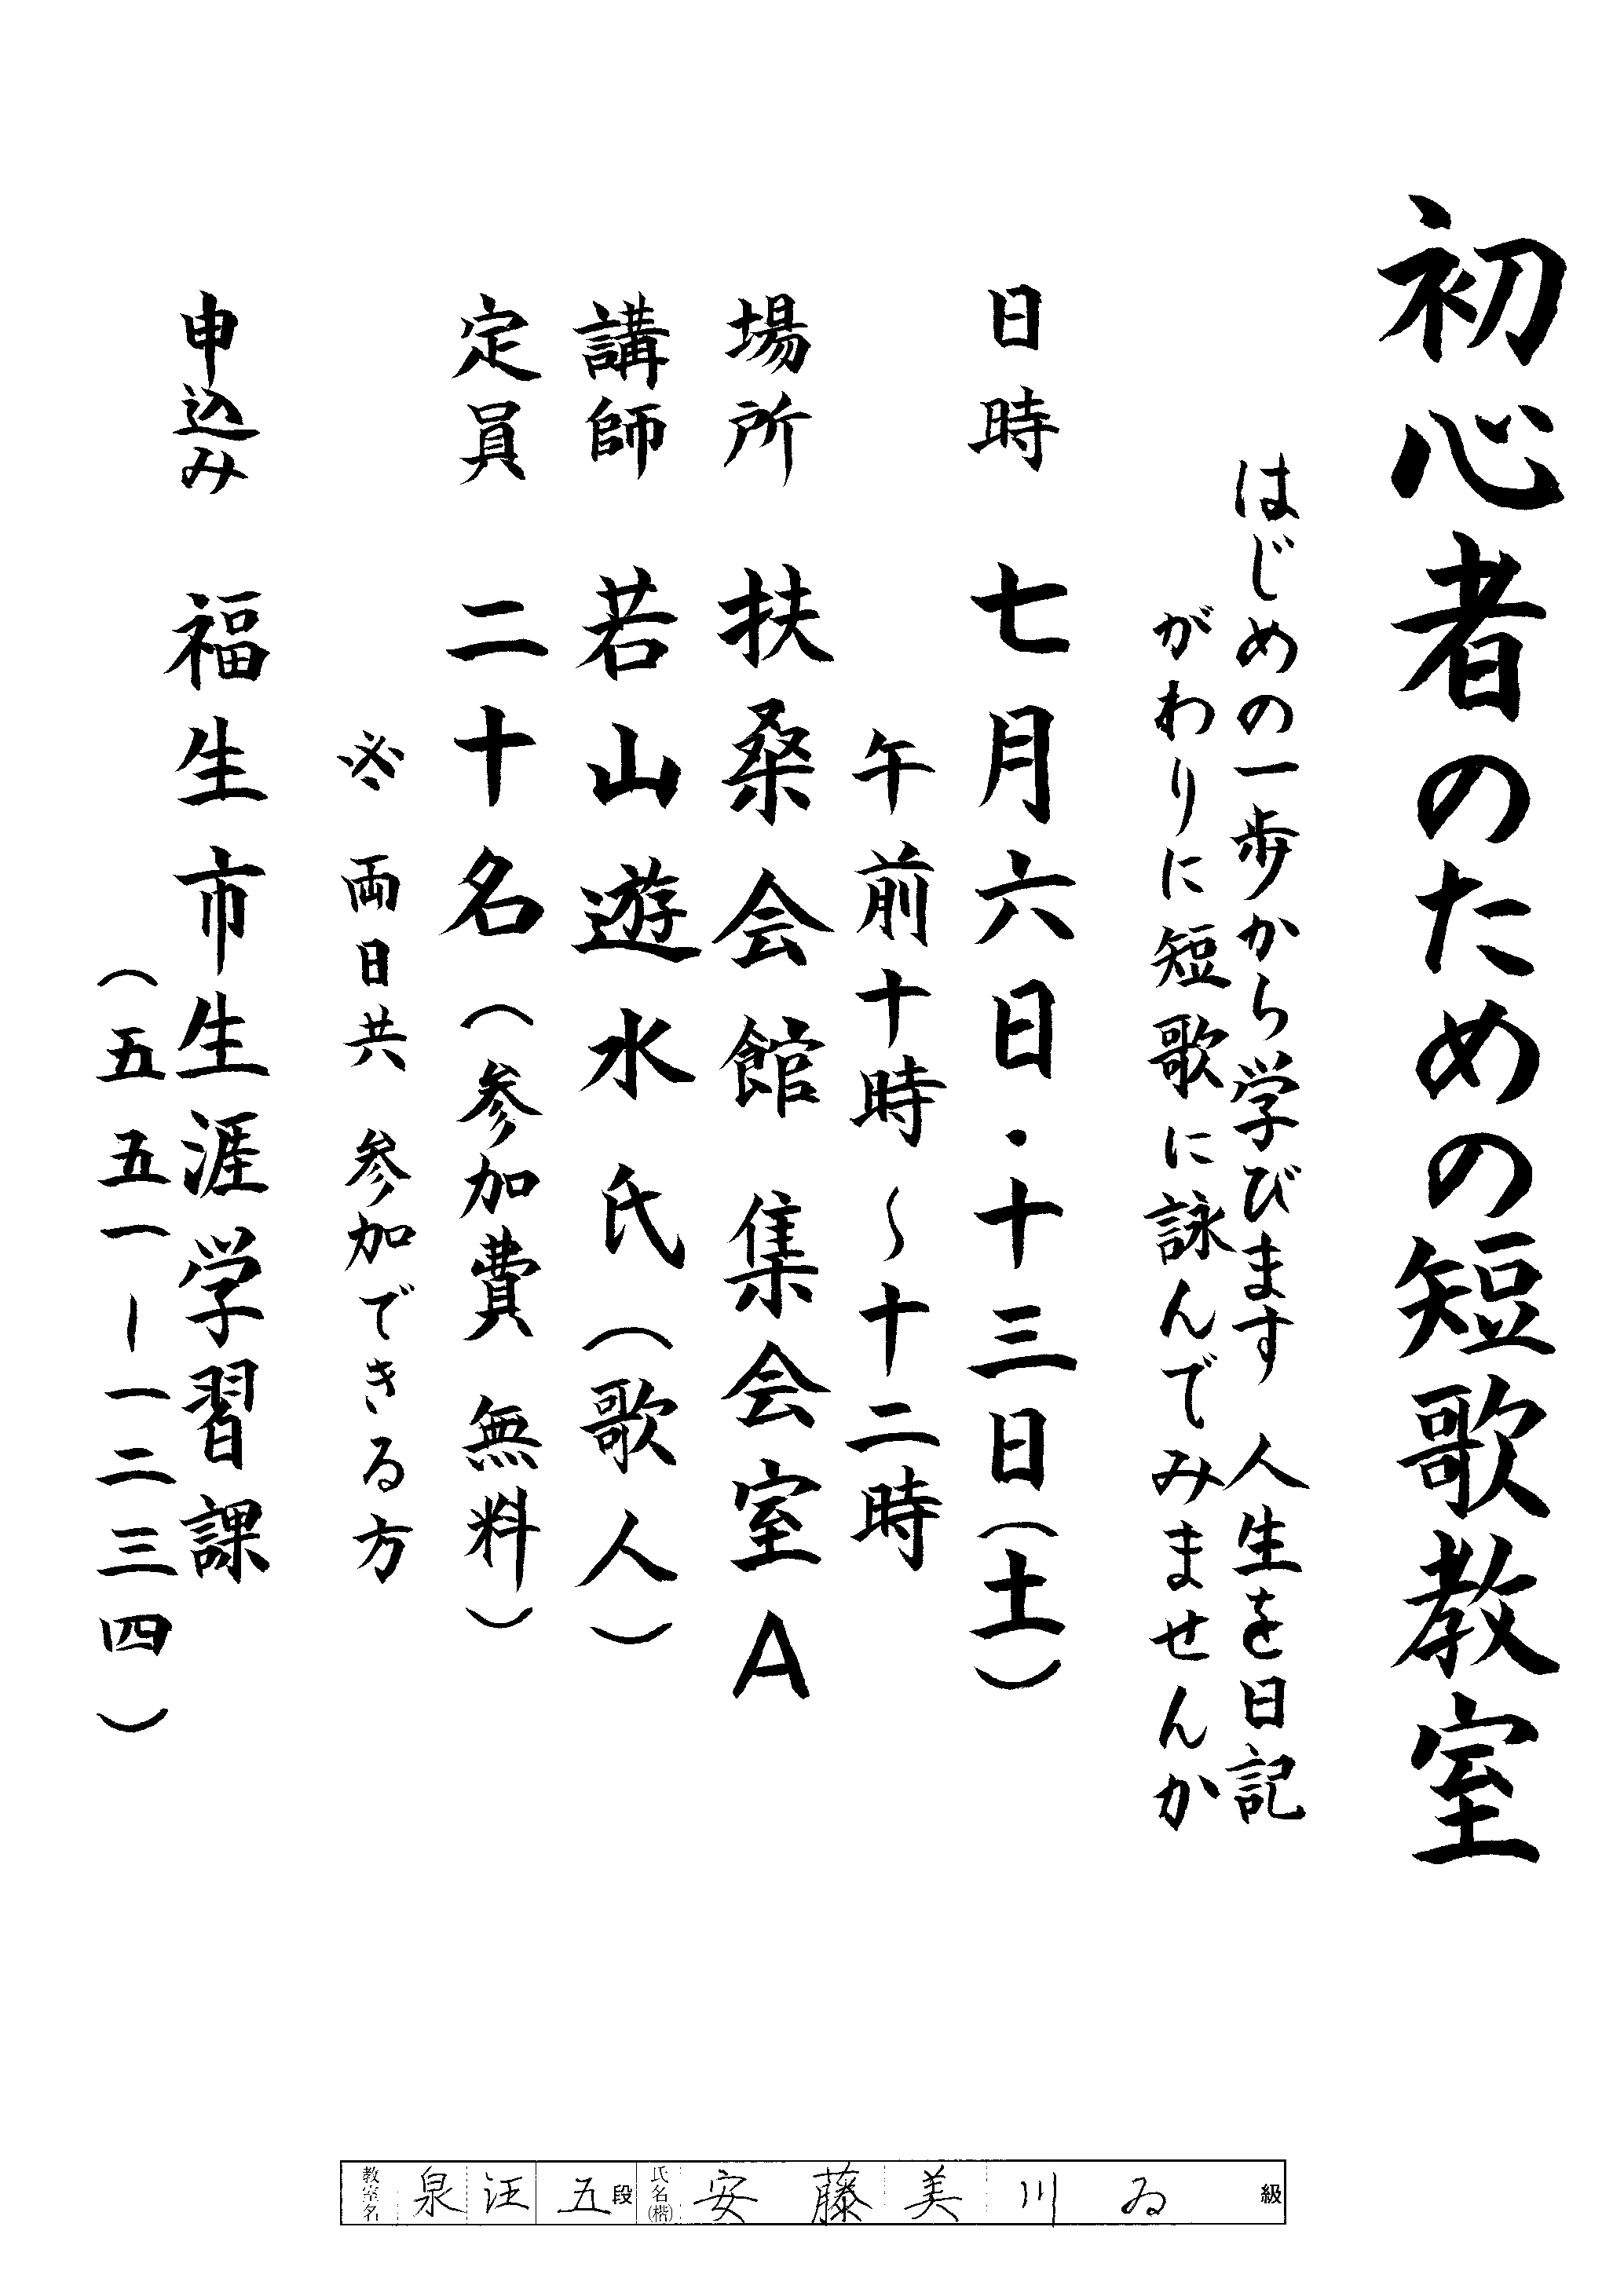 初心者のための短歌教室
はじめの一歩から学びます 人生を日記
がわりに短歌に詠んでみませんか
日時 七月六日・十三日(土)
午前十時～十二時
場所 扶桑会館 集会室A
講師 若山遊水氏(歌人)
定員 二十名(参加費 無料)
※ 両日共 参加できる方
申込み 福生市生涯学習課
(五五一-一二三四)
教室名 泉汪 五段 氏名(楷) 安藤美川 ゐ 級